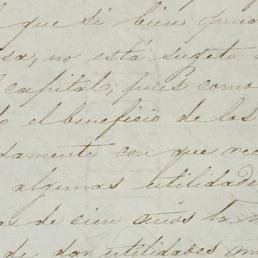 que si bien
sa, no está sugeto
capital, pues como
o el beneficio de los
damente con que
algunas utilidades
de cien años la
de dar utilidades